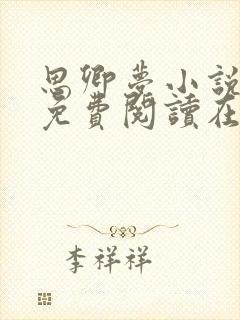 思卿夢小說
免費閱讀在
李祥祥